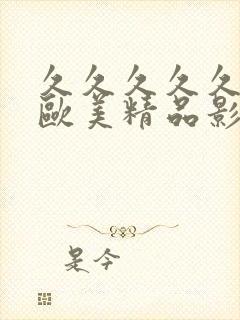 久久久久久
歐美精品影
是今